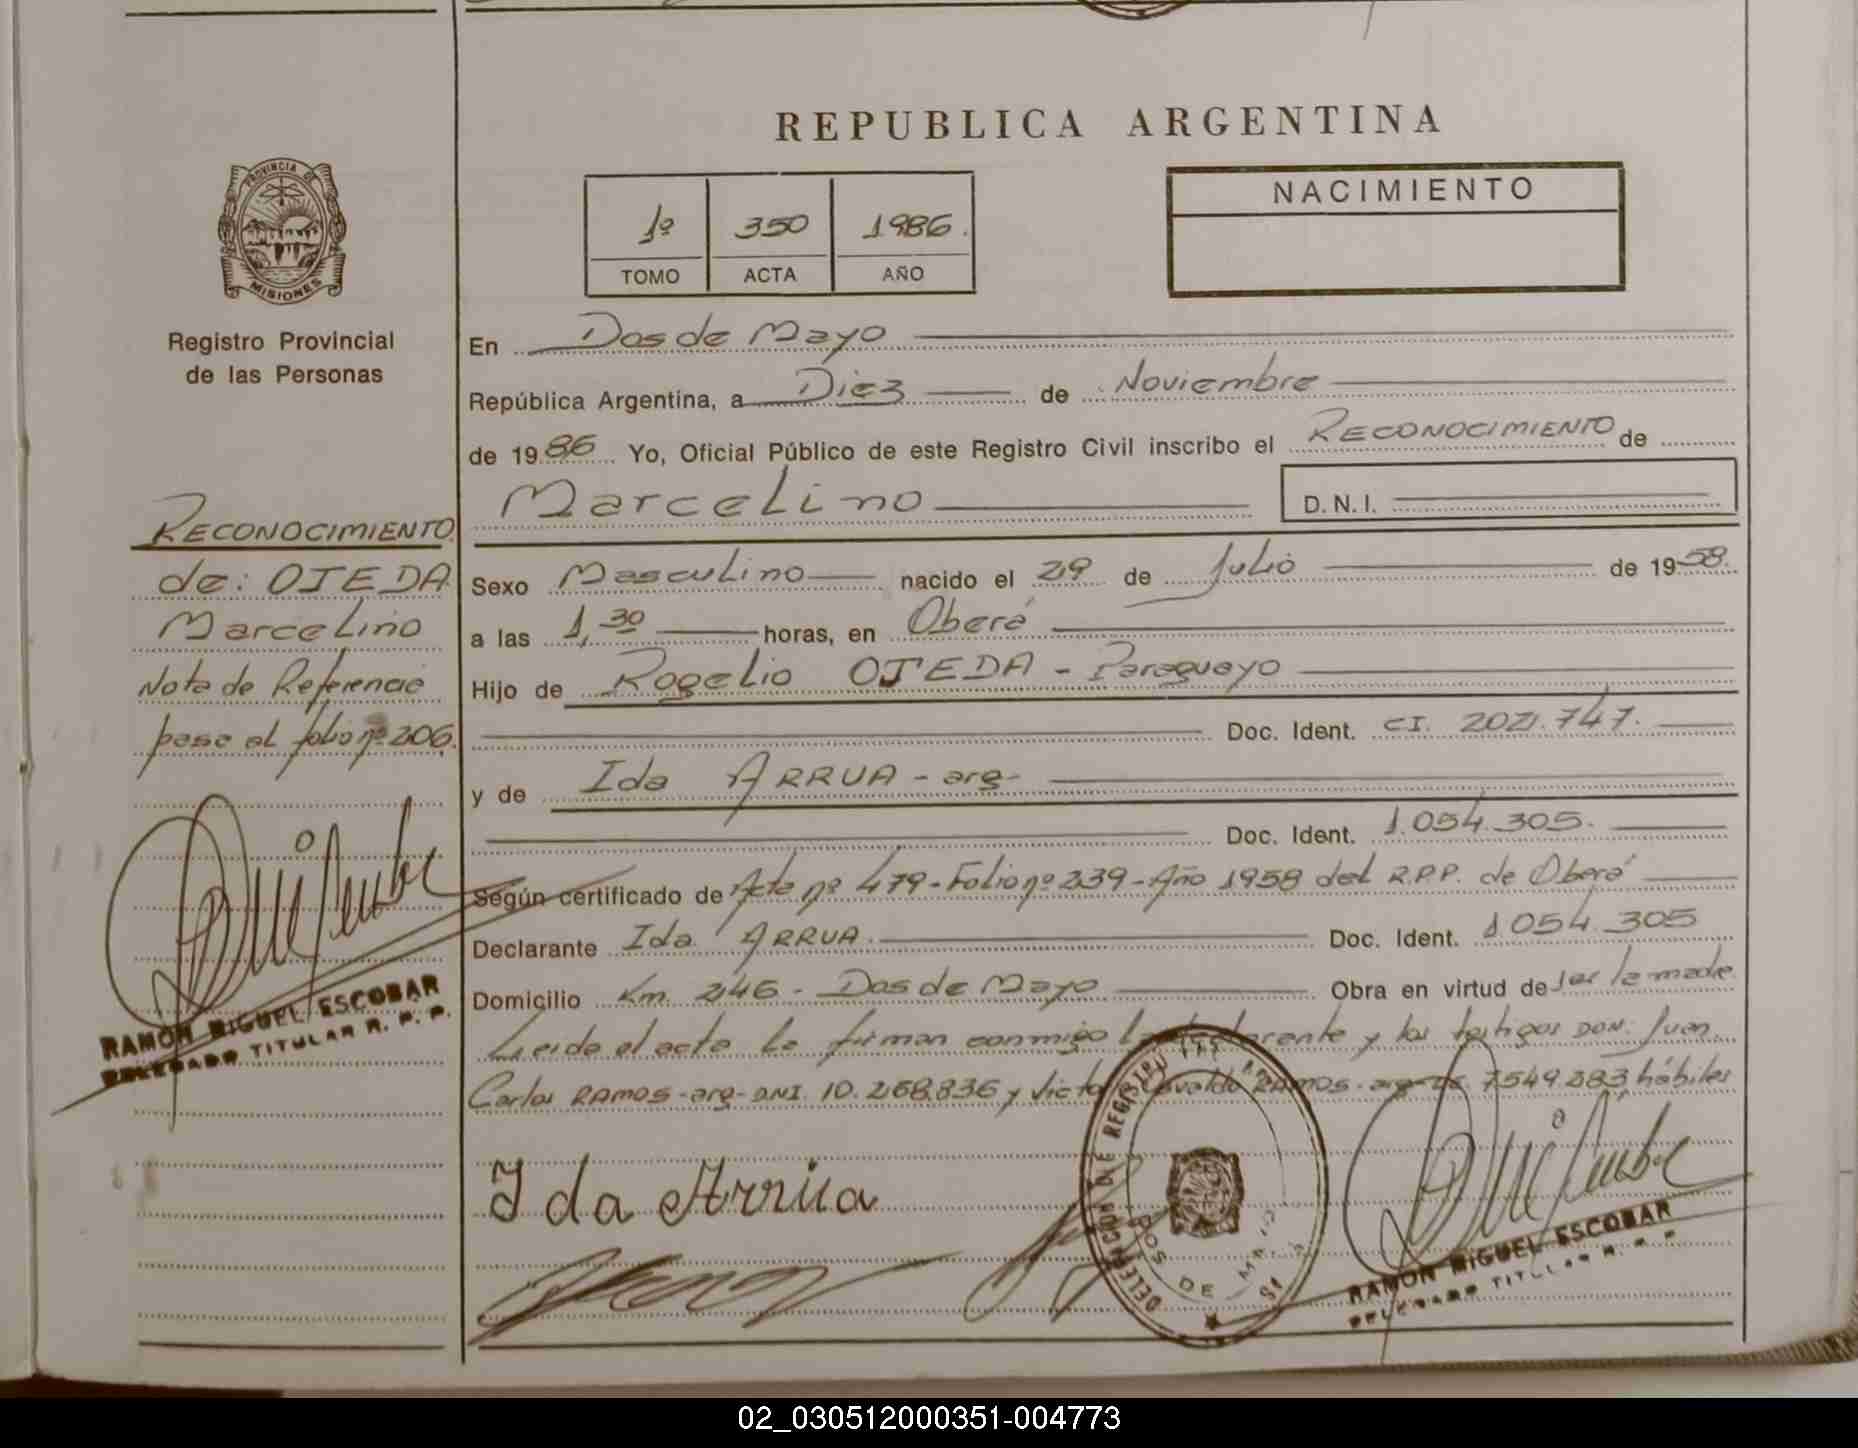 REPUBLICA ARGENTINA
PROVINCIA DE
MISIONES
Registro Provincial
de las Personas
1º 350 1986.
TOMO ACTA AÑO
NACIMIENTO
En Dos de Mayo
República Argentina, a Diez de Noviembre
de 1986 Yo, Oficial Público de este Registro Civil inscribo el RECONOCIMIENTO de
Marcelino D.N.I.
RECONOCIMIENTO
de: OJEDA
Marcelino
Nota de Referencia
pasa al folio nº 206.
RAMON MIGUEL ESCOBAR
DELEGADO TITULAR R. P. P.
Sexo Masculino nacido el 29 de Julio de 1958.
a las 1,30 horas, en Oberá
Hijo de Rogelio OJEDA - Paraguayo
Doc. Ident. CI. 202.747.
y de Ida ARRUA - arg-
Doc. Ident. 1.054.305.
Según certificado de Acta nº 479 - Folio nº 239 - Año 1958 del R.P.P. de Oberá
Declarante Ida ARRUA. Doc. Ident. 1.054.305
Domicilio Km. 246 - Dos de Mayo Obra en virtud de Ser la madre
Leida el acta la firman conmigo la declarante y los testigos DON. Juan
Carlos RAMOS - arg - DNI. 10.268.836 y Victor Osvaldo RAMOS - arg - 7.549.283 hábiles
Ida Arrúa
DELEGACION DE REGISTRO
DOS DE MAYO
RAMON MIGUEL ESCOBAR
DELEGADO TITULAR R. P. P.
02_030512000351-004773